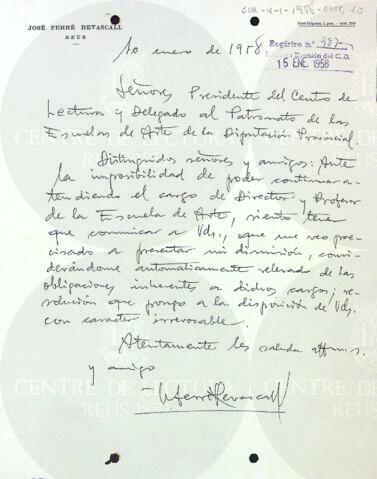 CCR-4-1-1958-C158, 10
JOSÉ FERRÉ REVASCALL
REUS
10 enero de 1958
Registro n.° 487
15 ENE. 1958
Señores Presidente del Centro de
Lectura y Delegado al Patronato de las
Escuelas de Arte de la Diputación Provincial.
Distinguidos señores y amigos: Ante
la imposibilidad de poder continuar a-
tendiendo el cargo de Director y Profesor
de la Escuela de Arte, siento tener
que comunicar a Vds., que me veo pre-
cisado a presentar mi dimisión, consi-
derándome automáticamente relevado de las
obligaciones inherentes a dichos cargos; re-
solución que pongo a la disposición de Vds.
con caracter irrevocable.
Atentamente les saluda affmo. s.
y amigo
J. Ferré Revascall
CENTRE DE LECTURA
REUS 1859